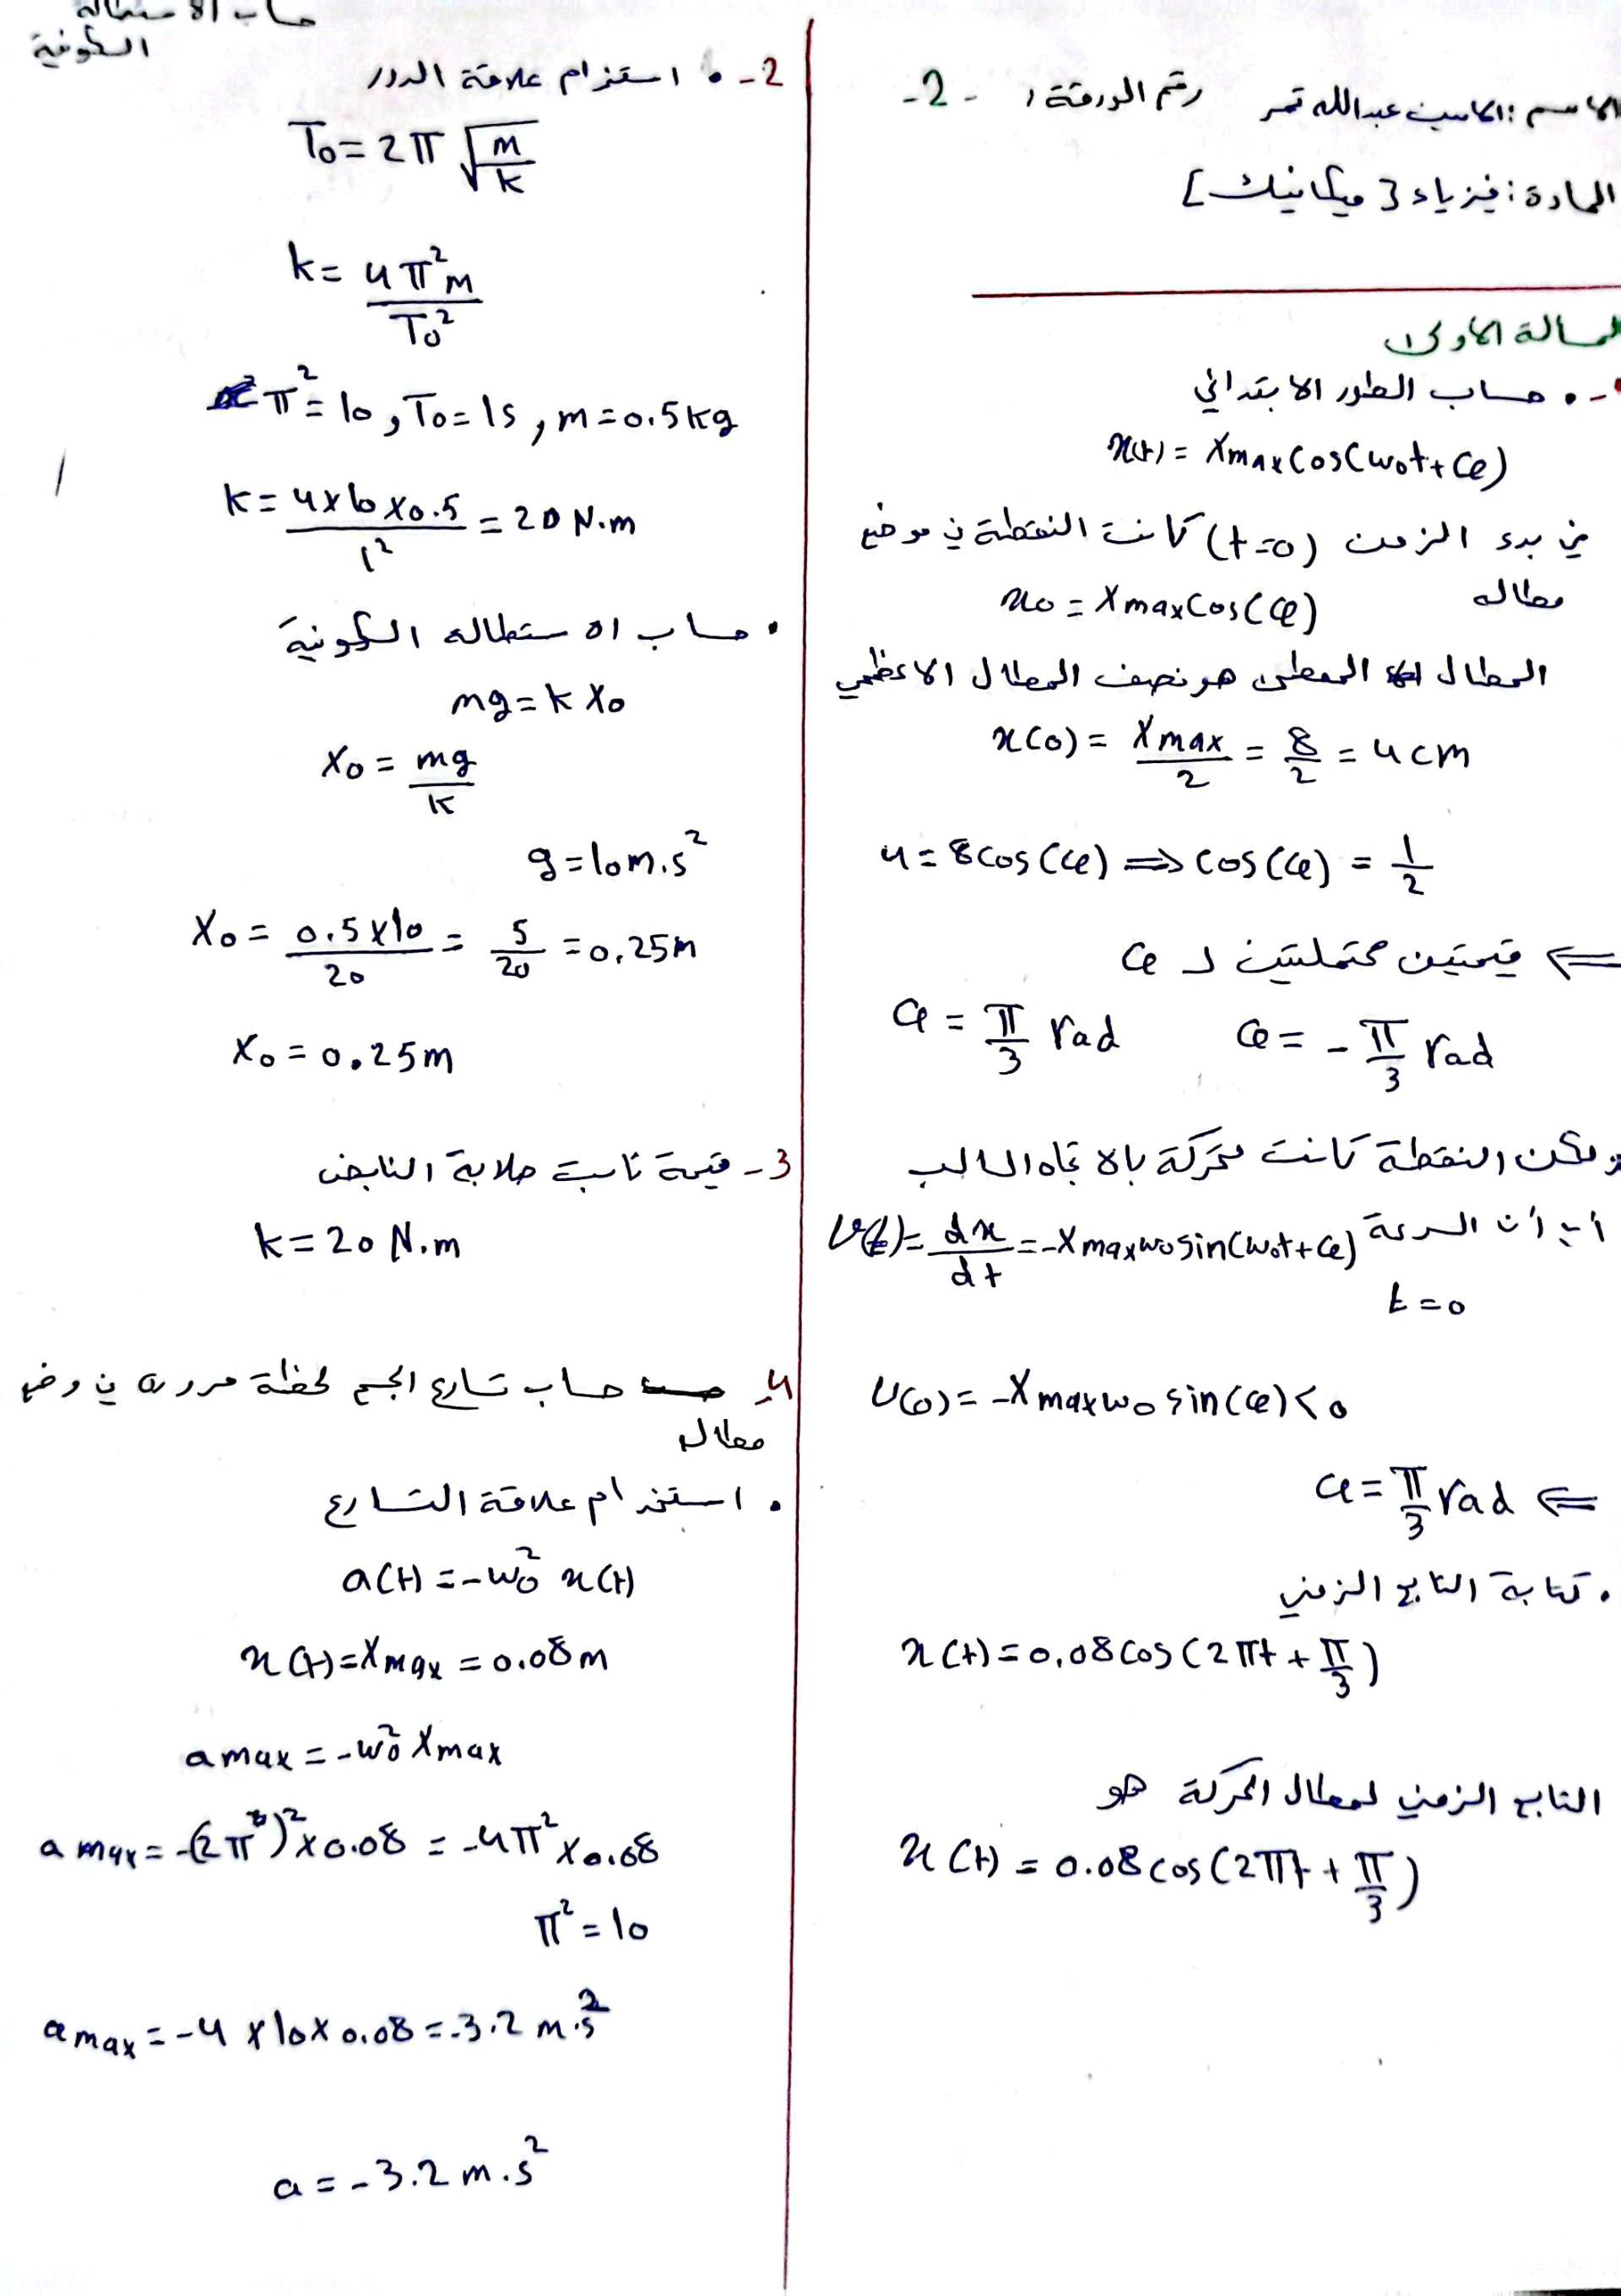 الاسم: الكاسب عبدالله تمر رقم الورقة: -2-
المادة: فيزياء [ميكانيك]
المسالة الاولى
• حساب الطور الابتدائي
x(t) = Xmax cos(ω0t + φ)
في بدء الزمن (t=0) كانت النقطة في موضع
مطاله
x0 = Xmax cos(φ)
المطال المعطى هو نصف المطال الاعظمي
x(0) = Xmax/2 = 8/2 = 4 cm
4 = 8 cos(φ) ⟹ cos(φ) = 1/2
⟸ قيمتين محتملتين لـ φ
φ = π/3 rad φ = -π/3 rad
ولكن النقطة كانت متحركة بالاتجاه السالب
أي أن السرعة v(t) = dx/dt = -Xmax ω0 sin(ω0t + φ)
t = 0
v(0) = -Xmax ω0 sin(φ) < 0
⟸ φ = π/3 rad
• كتابة التابع الزمني
x(t) = 0,08 cos(2πt + π/3)
التابع الزمني لمطال الحركة هو
x(t) = 0.08 cos(2πt + π/3)
حساب الاستطالة
السكونية
2- • استخدام علاقة الدور
T0 = 2π √(m/k)
k = 4π²m/T0²
π² = 10 , T0 = 1s , m = 0.5 kg
k = 4×10×0.5/1² = 20 N.m
• حساب الاستطالة السكونية
mg = k X0
X0 = mg/k
g = 10 m.s²
X0 = 0.5×10/20 = 5/20 = 0,25m
X0 = 0.25m
3- قيمة ثابت صلابة النابض
k = 20 N.m
4- حساب تسارع الجسم لحظة مروره في وضع
مطاله
• استخدام علاقة التسارع
a(t) = -ω0² x(t)
x(t) = Xmax = 0.08m
a max = -ω0² Xmax
a max = -(2π)² × 0.08 = -4π² × 0.08
π² = 10
a max = -4 × 10 × 0.08 = -3.2 m.s²
a = -3.2 m.s²